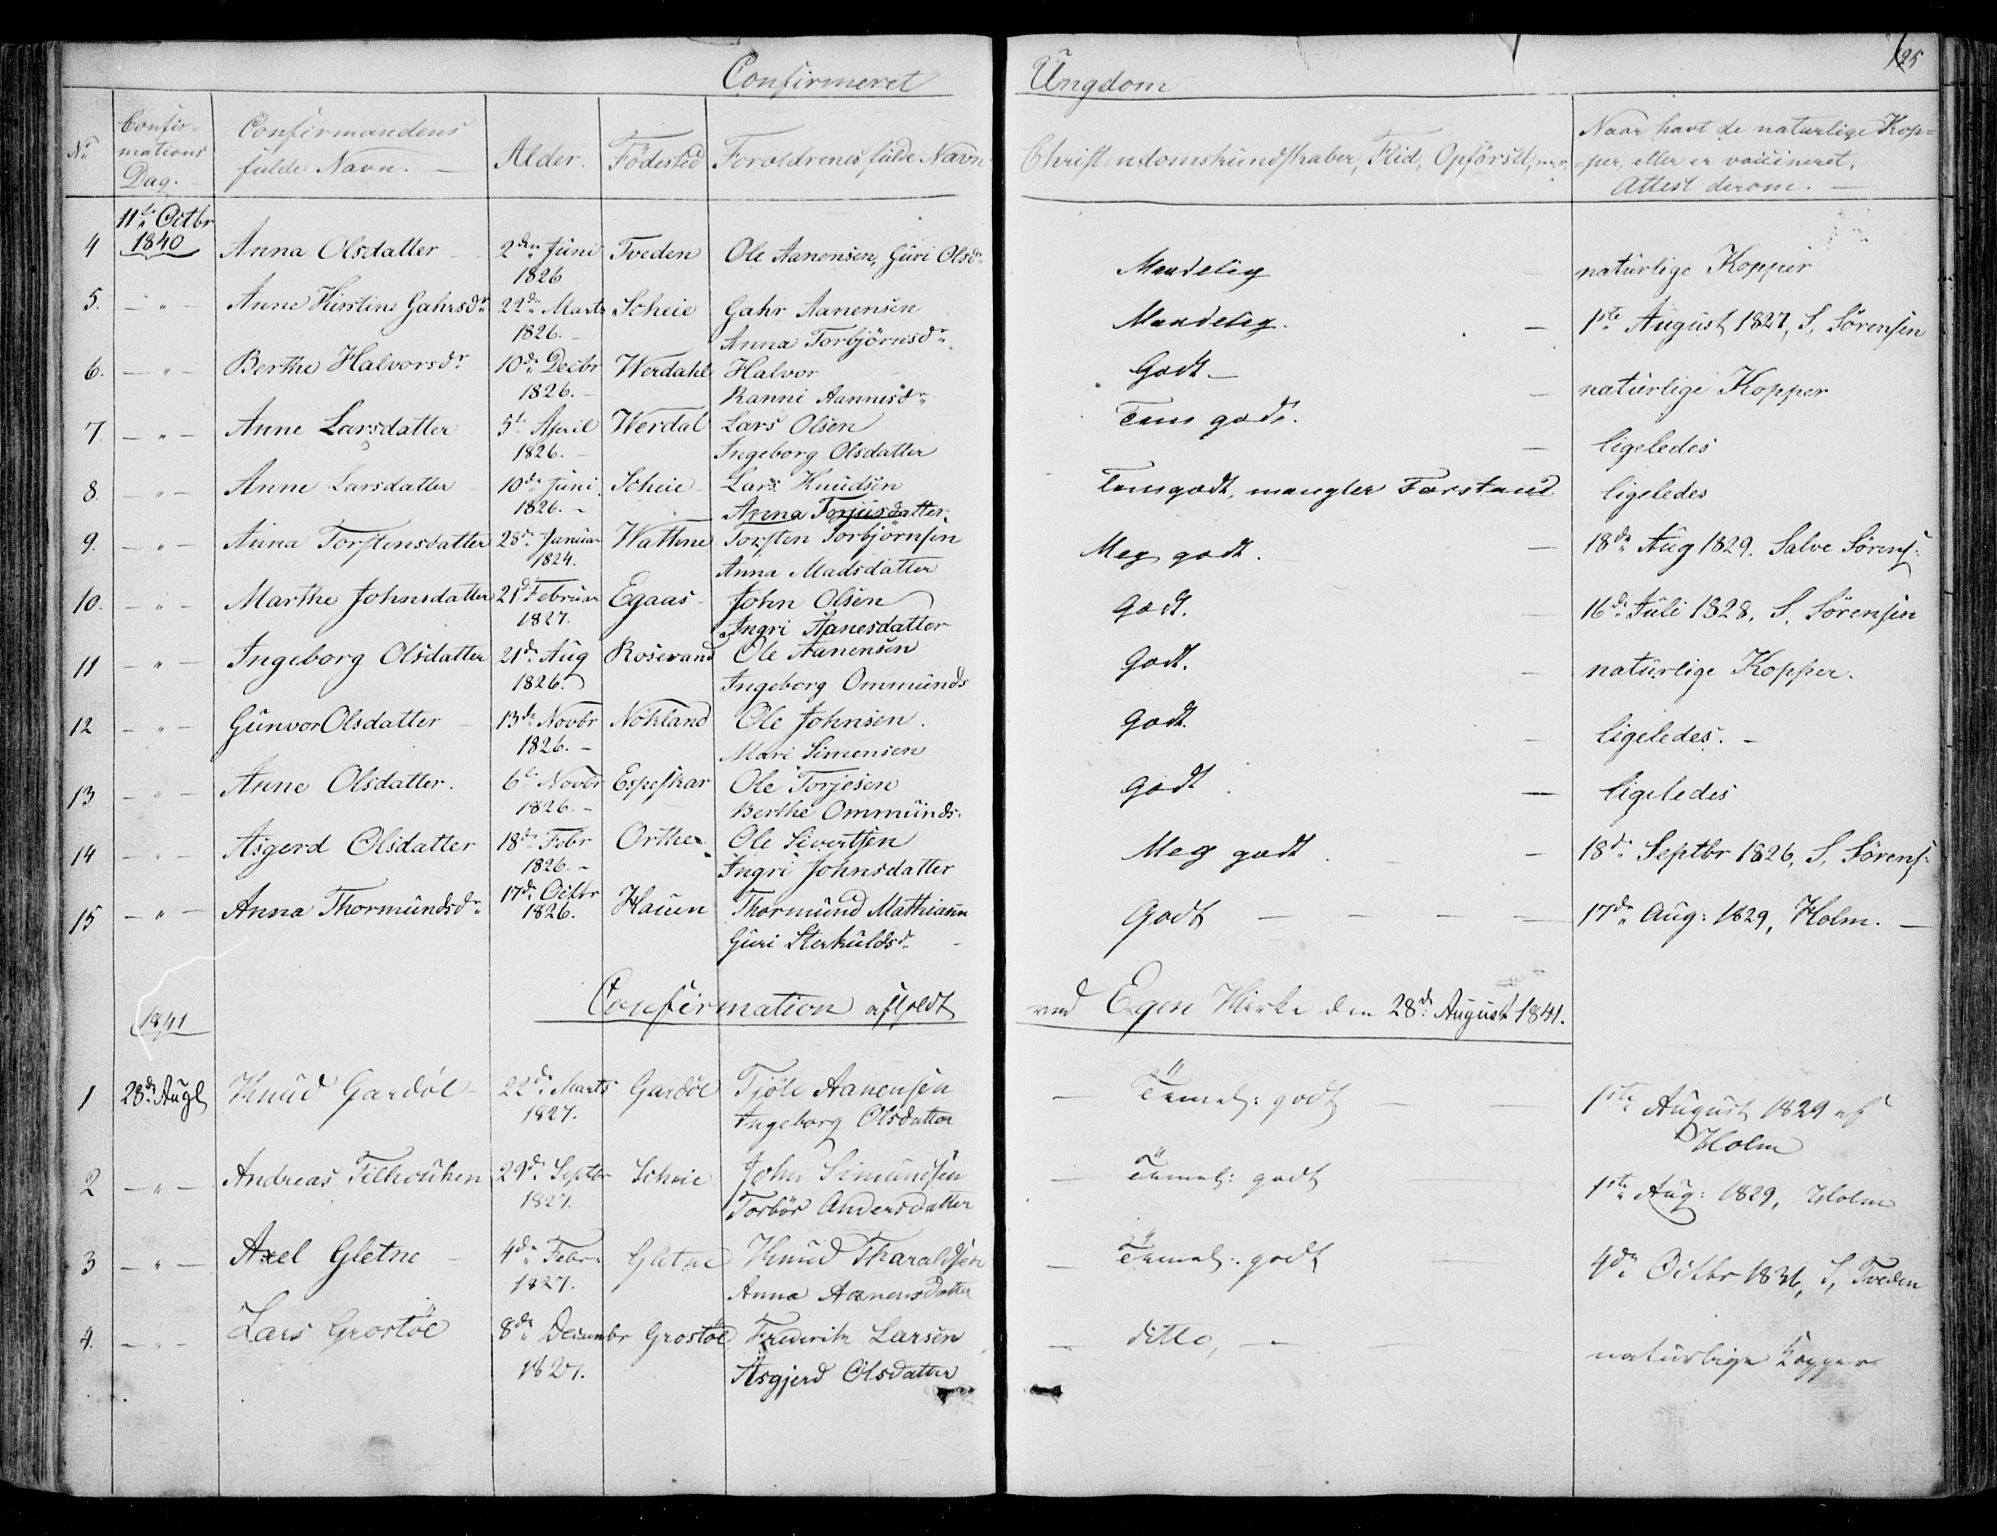 Confirmeret Ungdom
125
No
Confir-
mations
Dag.
Confirmandens
fulde Navn.
Alder.
Födested
Foroldrenes fulde Navn
Christendomskundskaber, Flid, Opförsel, m.v.
Naar havt de naturlige Kop-
per, eller er vaccineret,
Attest derom.
11te Octbr
4 1840 Anna Olsdatter 2den Juni Tveden Ole Aanensen, Guri Olsdr Maadelig naturlige Kopper
1826
5. - " - Anne Kirstine Gahrsdr 22de Marts Scheie Gahr Aanensen Maadelig. - 1ste August 1827, S. Sörensen
1826. Anna Torbjörnsdr
6. - " - Berthe Halvorsdr 10de Decbr Werdahl Halvor Godt - naturlige Kopper
1826. Ranni Aannisdr
7. - " - Anne Larsdatter 5te April Werdal Lars Olsen Tem godt. - ligeledes
1826. Ingeborg Olsdatter
8. - " - Anne Larsdatter 10de Juni Scheie Lars Knudsen Temgodt, mangler Forstand ligeledes
1826. Anna Torjusdatter
9. - " - Anna Torstensdatter 28de Januar Wathne Torsten Torbjörnsen Meg godt. - 18de Aug 1829. Salve Sörens:
1824. Anna Madsdatter
10. - " - Marthe Johnsdatter 21de Februar Egaas John Olsen Godt. 16de Juli 1828, S. Sörensen
1827. Ingri Aanesdatter
11 - " - Ingeborg Olsdatter 21de Aug Rosevand Ole Aanensen Godt. - naturlige Kopper.
1826. Ingeborg Ommunds
12 - " - Gunvor Olsdatter 13de Novbr Nökland Ole Johnsen. Godt. - ligeledes. -
1826. - Mari Simensen
13 - " - Anne Olsdatter. 6te Novbr Espeskar Ole Torjesen Godt. - ligeledes
1826. - Berthe Ommunds.
14 - " - Asgerd Olsdatter 18de Febr Orthe Ole Sivertsen Meg godt. - 18de Septbr 1826, S. Sörens:
1826. - Ingri Johnsdatter
15 - " - Anna Thormundsdr 17de Octbr Hauen Thormund Mathiasen Godt - - - - 17de Aug: 1829, Holm. -
1826.
Guri Sterkuldsdr
1841 Confirmation afholdt ved Egen Kirke den 28de August 1841.
1 28de Augl Knud Gardöl 22de Marts Gardöl Tjöle Aanensen - Temel: godt - - 1ste August 1829 af
1827. Ingeborg Olsdatter Holm
2 - " - Andreas 29de Septbr Scheie John Simundsen - Temel: godt 1ste Aug: 1829, Holm
1827. Torbör Andersdatter
3 - " - Axel Gletne - 4de Febr. Gletne Knud Tharaldsen - Temel: godt 4de Octbr 1836, S. Tveden
1827. Anna Aanensdatter
4. - " - Lars Grostöl 8de Decembr Grostöl Frederik Larsen - ditto, - naturlige Kopper
1827. Asgjerd Olsdatter